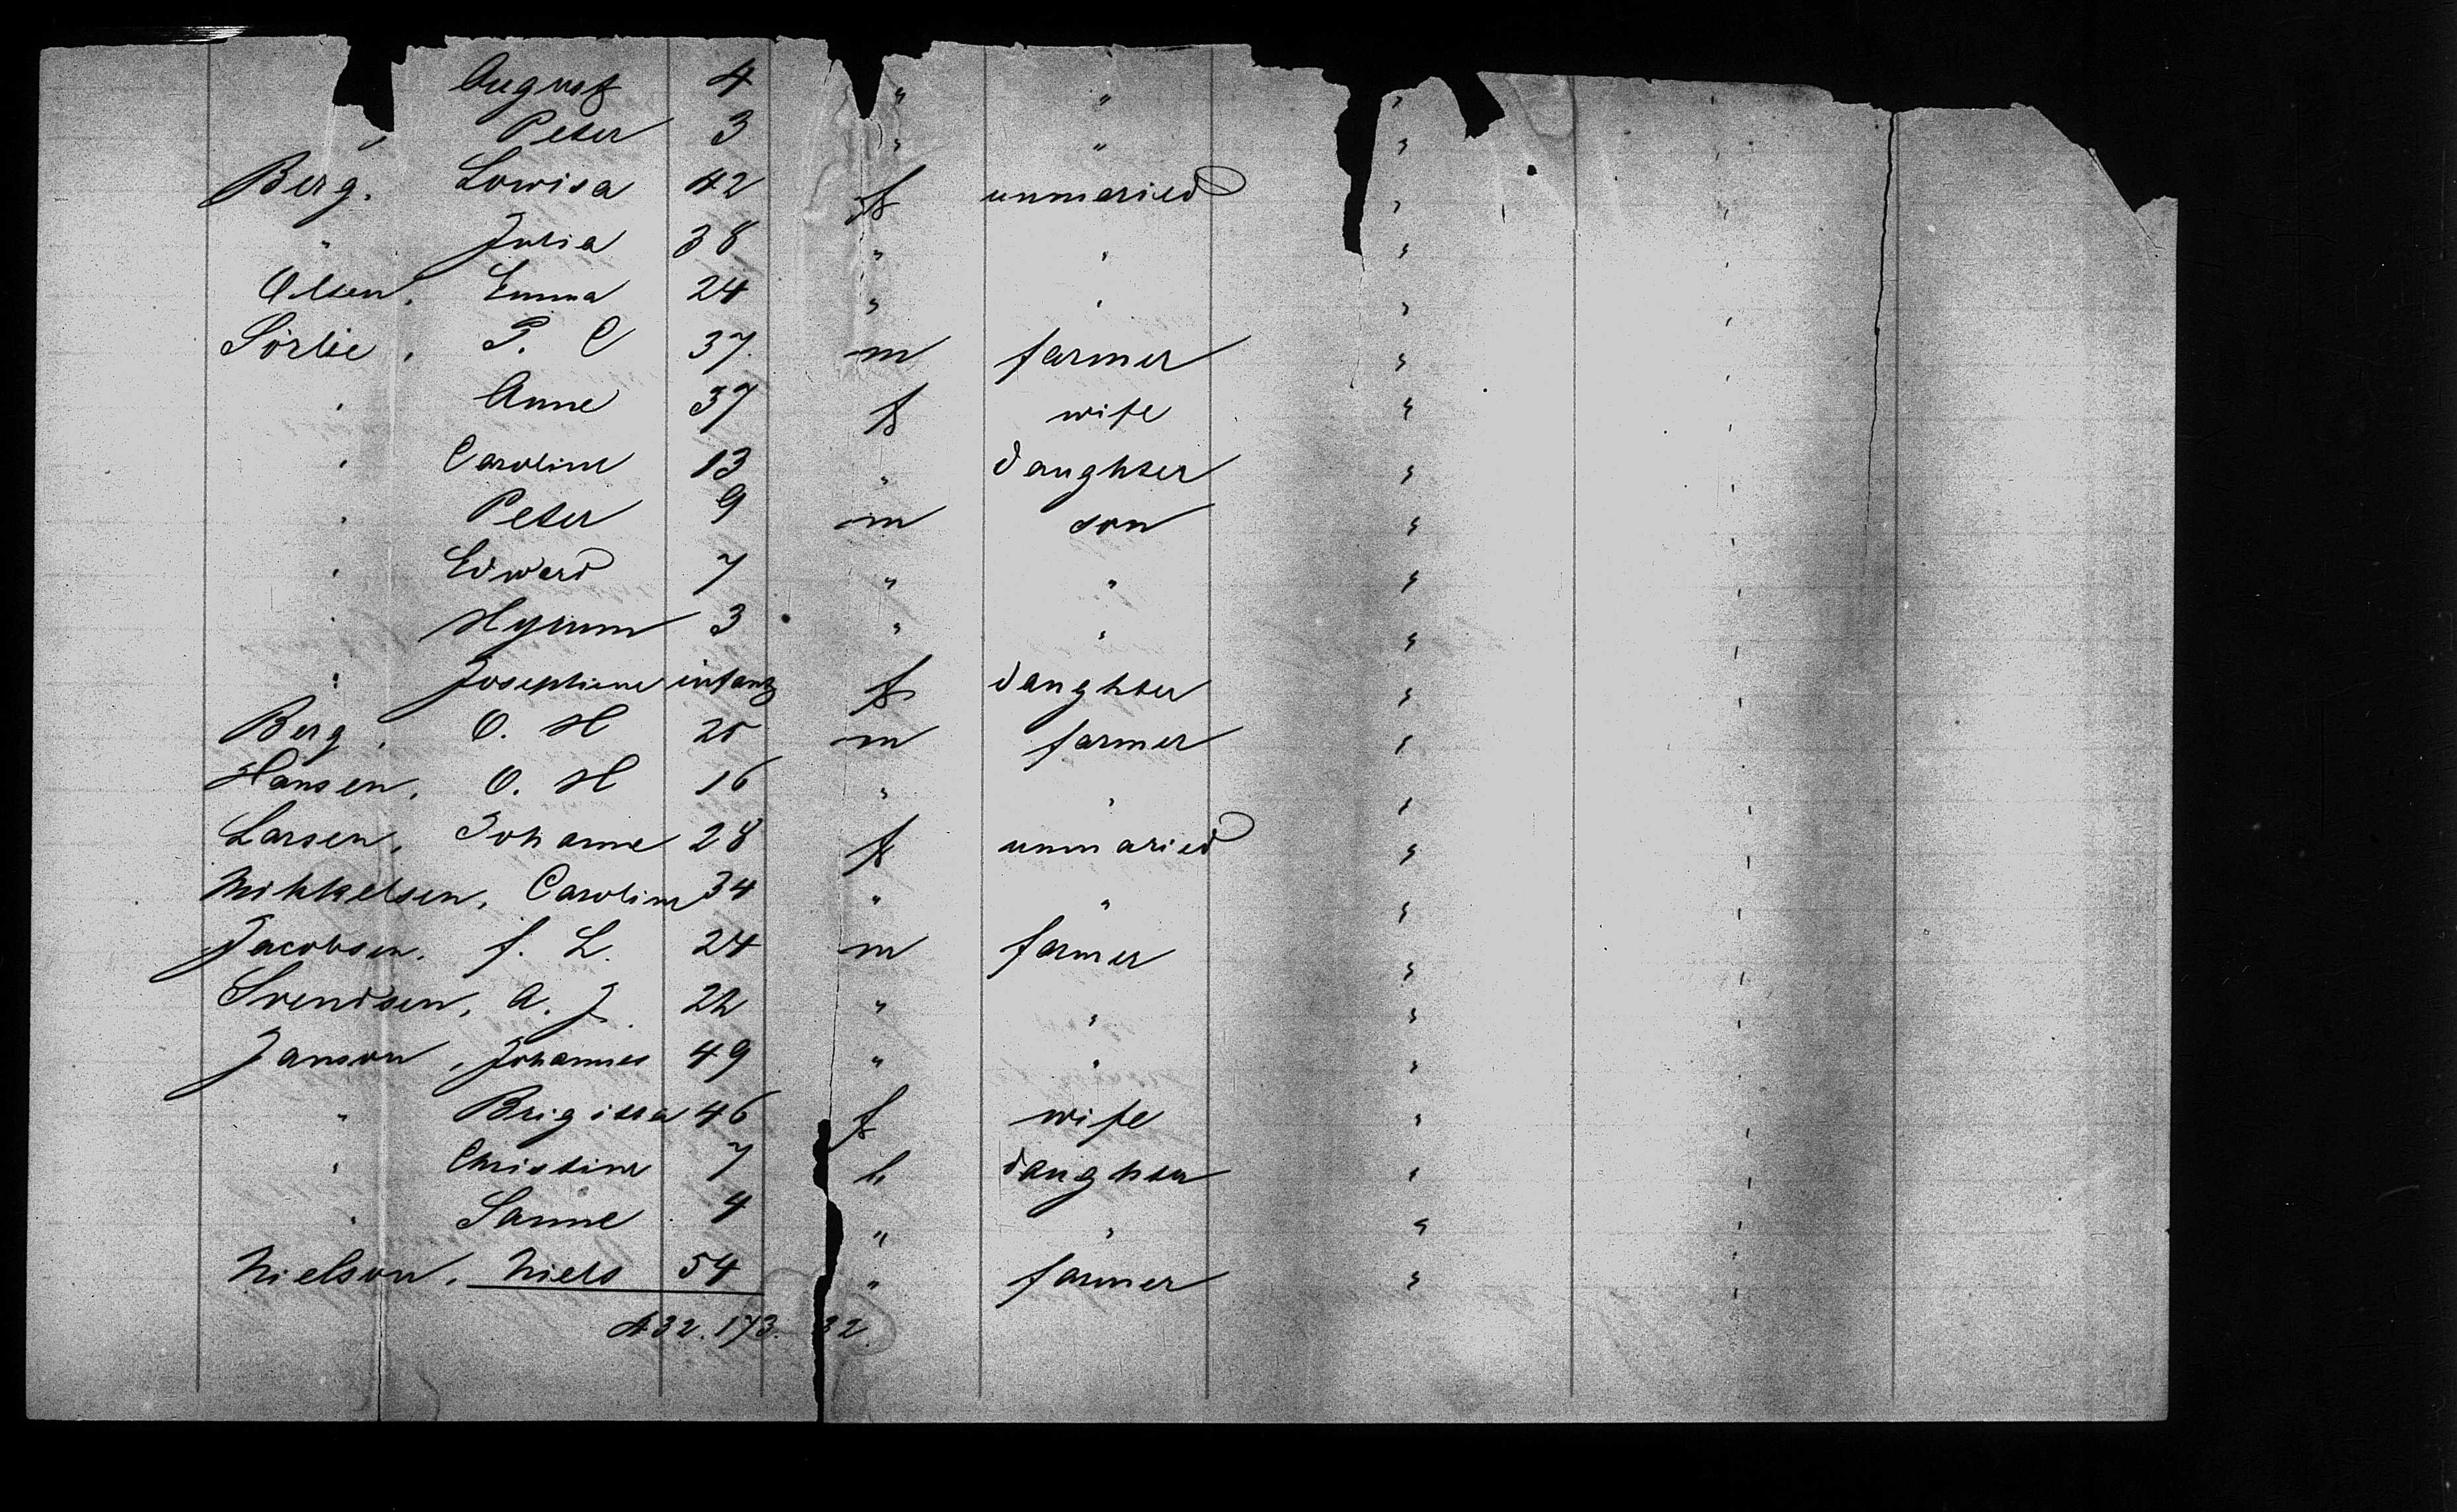 August 4 " " "
" Peter 3 " " "
Berg. Lowisa 42 f unmaried " "
" Julia 38 " " " "
Olsen. Emma 24 " " " "
Sörlie. P. C 37. m farmer " "
" Anne 37 f wife " "
" Caroline 13 " daughter " "
" Peter 9 m son " "
" Edward 7 " " " "
" Hyrum 3 " " " "
" Josephine infant f daughter " "
Berg. O. H 25 m farmer " "
Hansen. O. H 16 " " " "
Larsen. Johanne 28 f unmaried " "
Mikkelsen. Caroline 34 " " " "
Jacobsen. f. L. 24 m farmer " "
Svendsen. A. J. 22 " " " "
Janson. Johannes 49 " " " "
" Brigitta 46 f wife " "
" Christine 7 " daughter " "
" Sanne 4 " " " "
Nielson. Niels 54 " farmer " "
432. 173. 32.